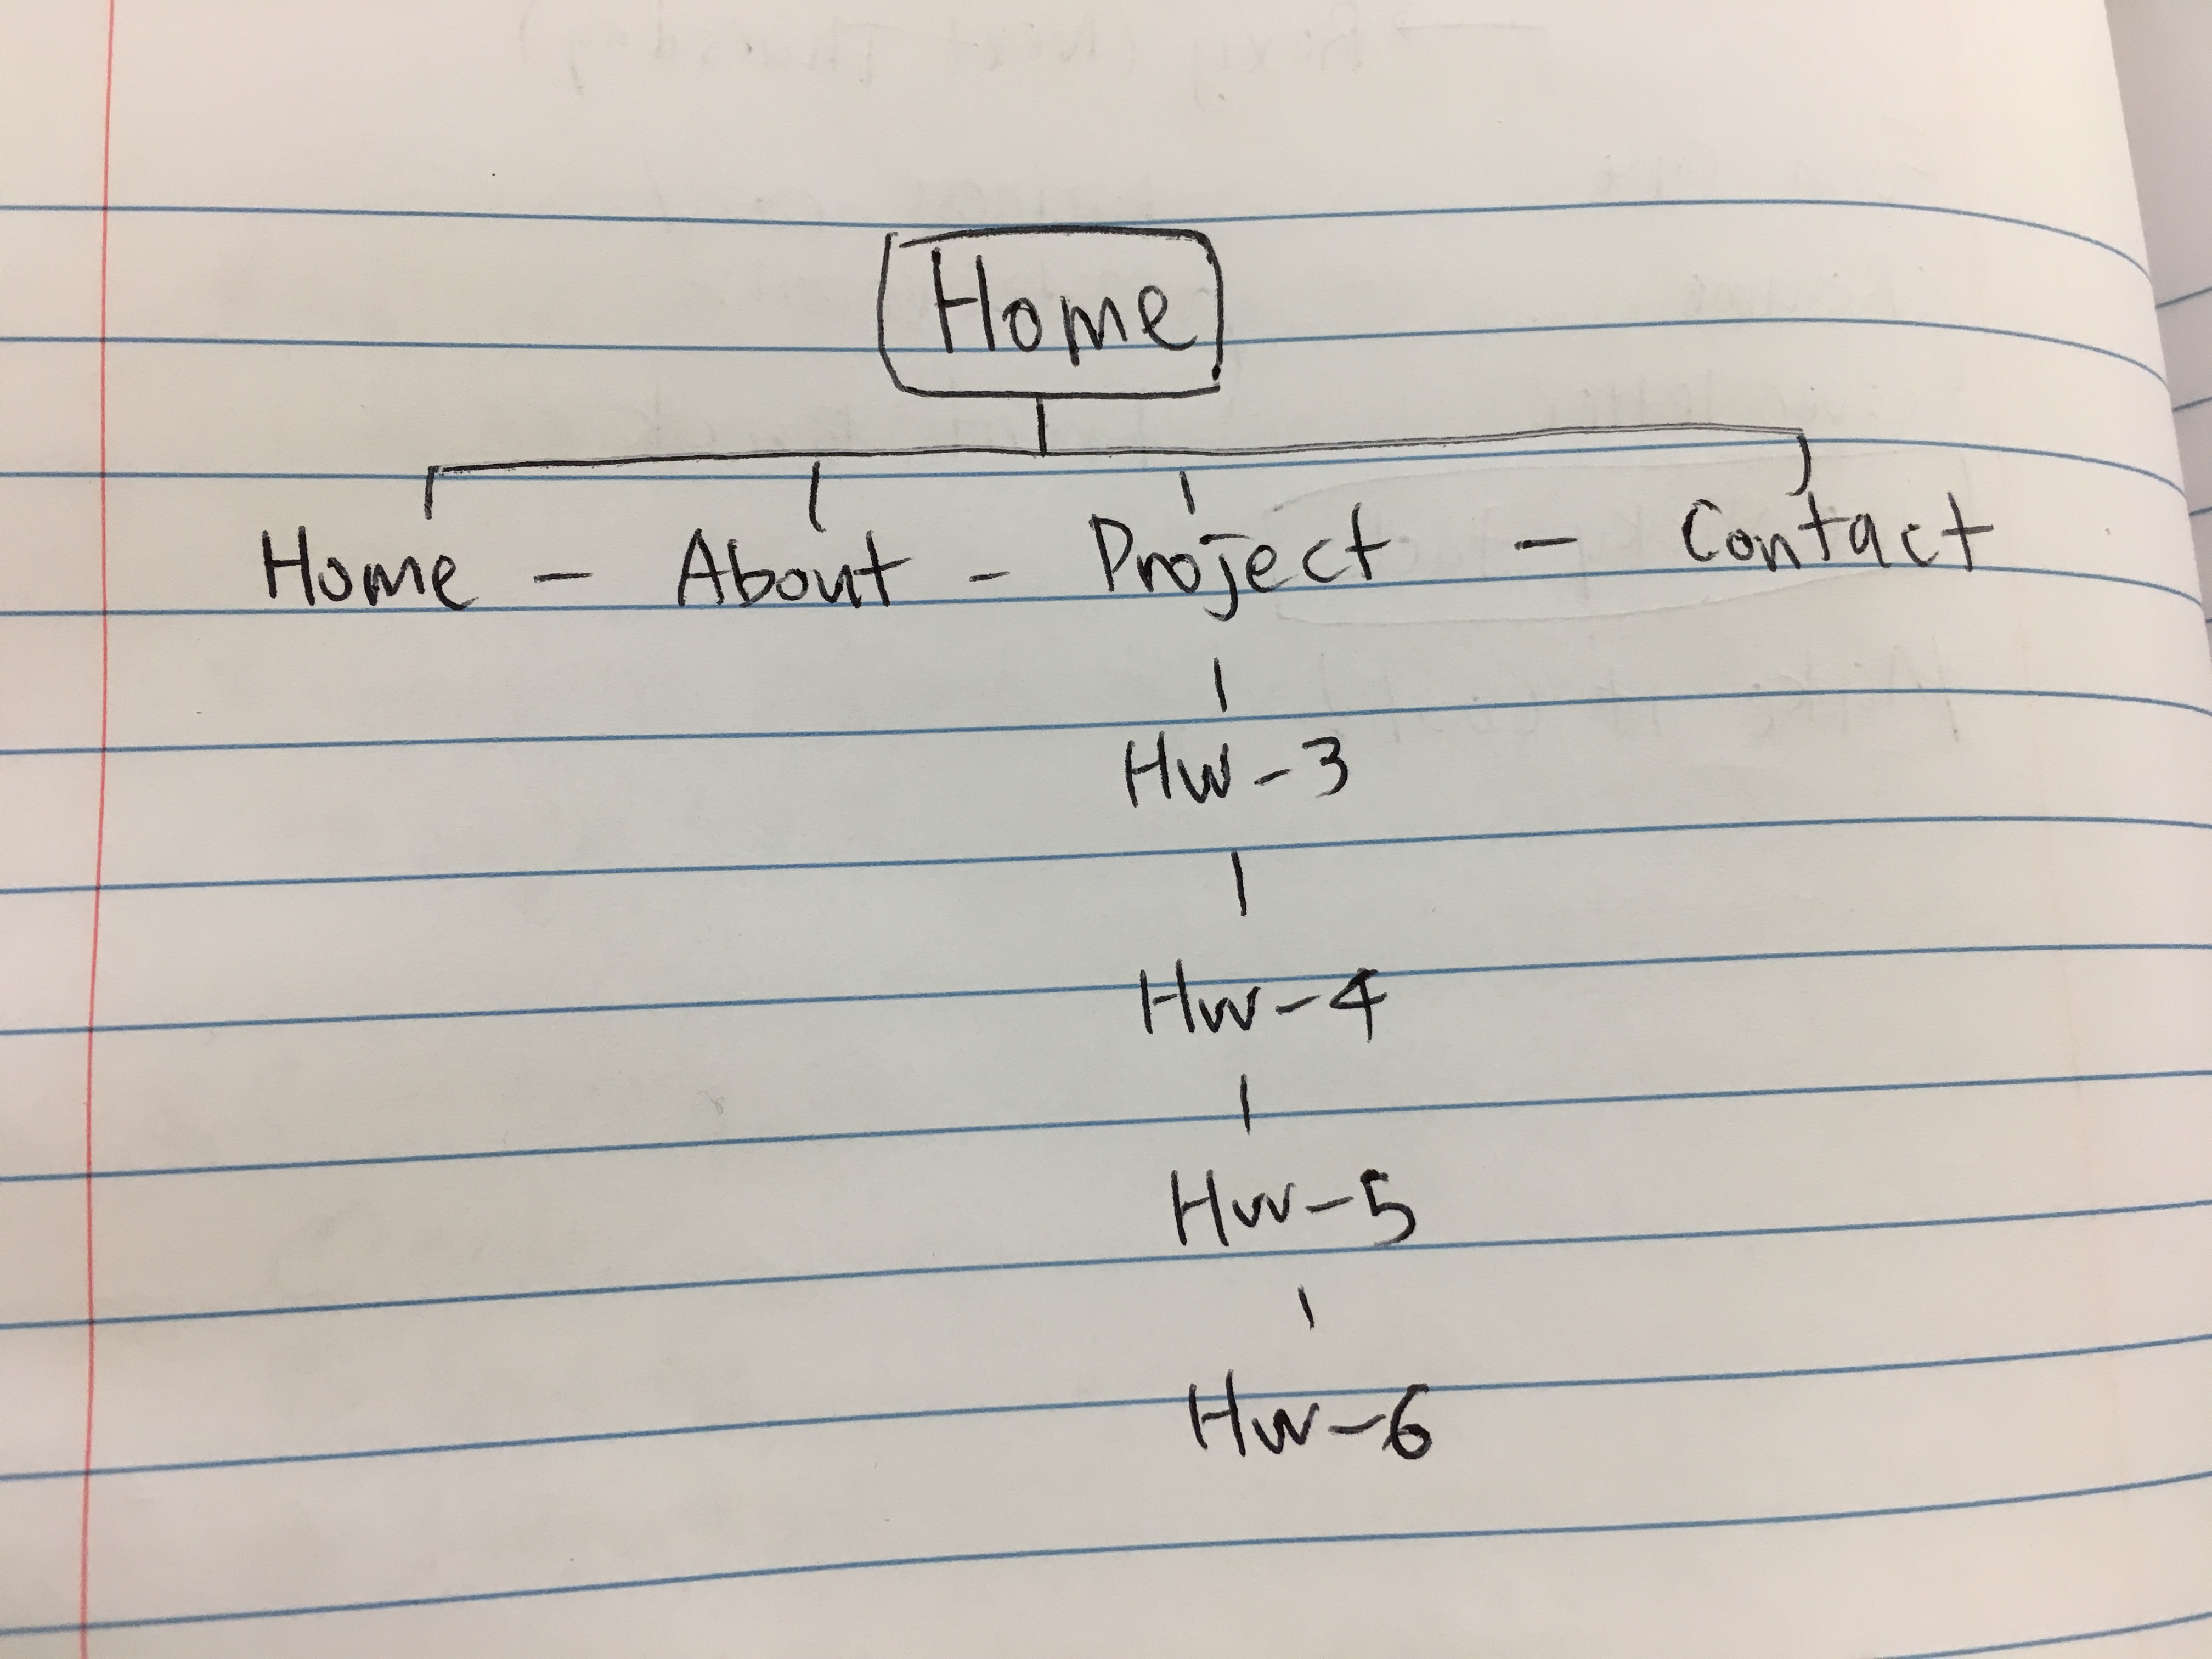 Home
Home - About - Project - Contact
HW-3
HW-4
HW-5
HW-6